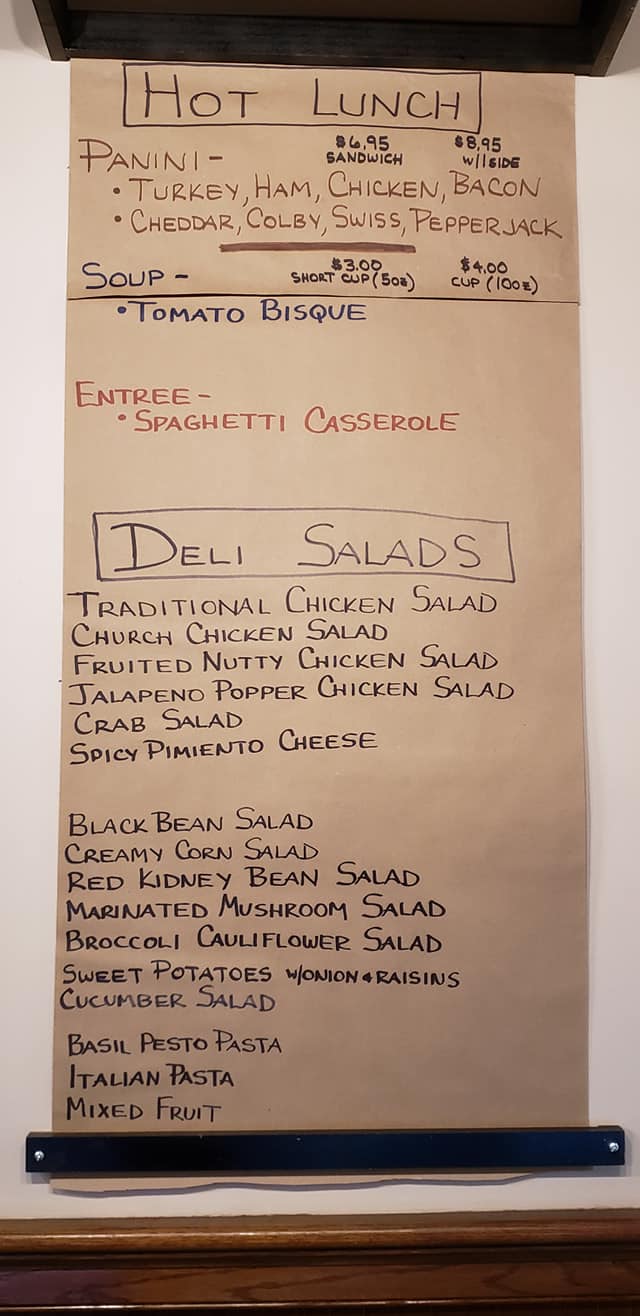 HOT LUNCH
PANINI - $6.95 SANDWICH $8.95 W/1 SIDE
• TURKEY, HAM, CHICKEN, BACON
• CHEDDAR, COLBY, SWISS, PEPPERJACK
SOUP - $3.00 SHORT CUP (5oz) $4.00 CUP (10oz)
• TOMATO BISQUE
ENTREE -
• SPAGHETTI CASSEROLE
DELI SALADS
TRADITIONAL CHICKEN SALAD
CHURCH CHICKEN SALAD
FRUITED NUTTY CHICKEN SALAD
JALAPENO POPPER CHICKEN SALAD
CRAB SALAD
SPICY PIMIENTO CHEESE
BLACK BEAN SALAD
CREAMY CORN SALAD
RED KIDNEY BEAN SALAD
MARINATED MUSHROOM SALAD
BROCCOLI CAULIFLOWER SALAD
SWEET POTATOES W/ONION & RAISINS
CUCUMBER SALAD
BASIL PESTO PASTA
ITALIAN PASTA
MIXED FRUIT